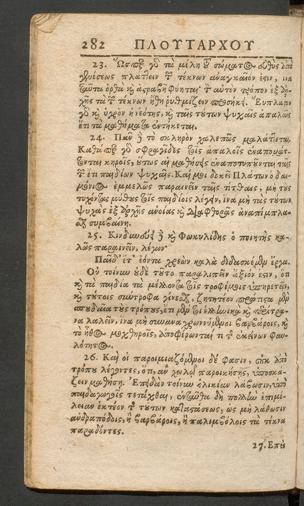 282 ΠΛΟΥΤΑΡΧΟΥ
23. Ὥσπερ γὸ τὰ μέλη τοῦ σώματος εὐθὺς ἀπὸ
γενέσεως πλάττειν τῶν τέκνων ἀναγκαῖον ἐστιν, ἵνα
ταῦτα ὀρθὰ καὶ ἀστραβῆ φύηται· τὸν αὐτὸν τρόπον ἐξ ἀρ-
χῆς τὰ τῶν τέκνων ἤθη ῥυθμίζειν προσήκει. Εὔπλαστον
γὸ καὶ ὑγρὸν ἡ νεότης, καὶ ταῖς τούτων ψυχαῖς ἁπαλαῖς
ἔτι τὰ μαθήματα ἐντήκεται.
24. Πᾶν δὲ τὸ σκληρὸν χαλεπῶς μαλάττεται.
Καθάπερ γὸ σφραγίδες τοῖς ἁπαλοῖς ἐναπομάτ-
τονται κηροῖς, οὕτως αἱ μαθήσεις ἐναποτυποῦνται ταῖς
τῶν ἔτι παιδίων ψυχαῖς. Καί μοι δοκεῖ Πλάτων ὁ δαι-
μόνιος ἐμμελῶς παραινεῖν ταῖς τίτθαις, μὴ τοὺς
τυχόντας μύθους τοῖς παιδίοις λέγειν, ἵνα μὴ τὰς τούτων
ψυχὰς ἐξ ἀρχῆς ἀνοίας καὶ διαφθορᾶς ἀναπίμπλα-
σθαι συμβαίνῃ.
25. Κινδυνεύει δὲ καὶ Φωκυλίδης ὁ ποιητὴς κα-
λῶς παραινεῖν, λέγων·
Παῖδ' ἔτ' ἐόντα χρεὼν καλὰ διδασκέμεν ἔργα.
Οὐ τοίνυν οὐδὲ τοῦτο παραλιπεῖν ἄξιόν ἐστιν, ὅτι
καὶ τὰ παιδία τὰ μέλλοντα τοῖς τροφίμοις ὑπηρετεῖν,
καὶ τούτοις σύντροφα γίνεσθαι, ζητητέον πρώτιστα μὲν
σπουδαῖα τοὺς τρόπους, ἔτι μὲν ἑλληνικὰ καὶ περίτρα-
να λαλεῖν, ἵνα μὴ συναναχρωννύμενοι βαρβάροις, καὶ
τὸ ἦθος μοχθηροῖς, ἀποφέρωνταί τι τῆς ἐκείνων φαυ-
λότητος.
26. Καὶ οἱ παροιμιαζόμενοι δέ φασιν, οὐκ ἀπὸ
τρόπου λέγοντες, ὅτι, ἂν χωλῷ παροικήσῃς, ὑποσκά-
ζειν μαθήσῃ. Ἐπειδὰν τοίνυν ἡλικίαν λάβωσιν, ὑπὸ
παιδαγωγοῖς τετάχθαι, ἐνταῦθα δὴ πολλὴν ἐπιμέ-
λειαν ἑκτέον τῆς τούτων καταστάσεως, ὡς μὴ λάθωσιν
ἀνδραπόδοις, ἢ βαρβάροις, ἢ παλιμβόλοις τὰ τέκνα
παραδόντες.
27. Ἐπεὶ